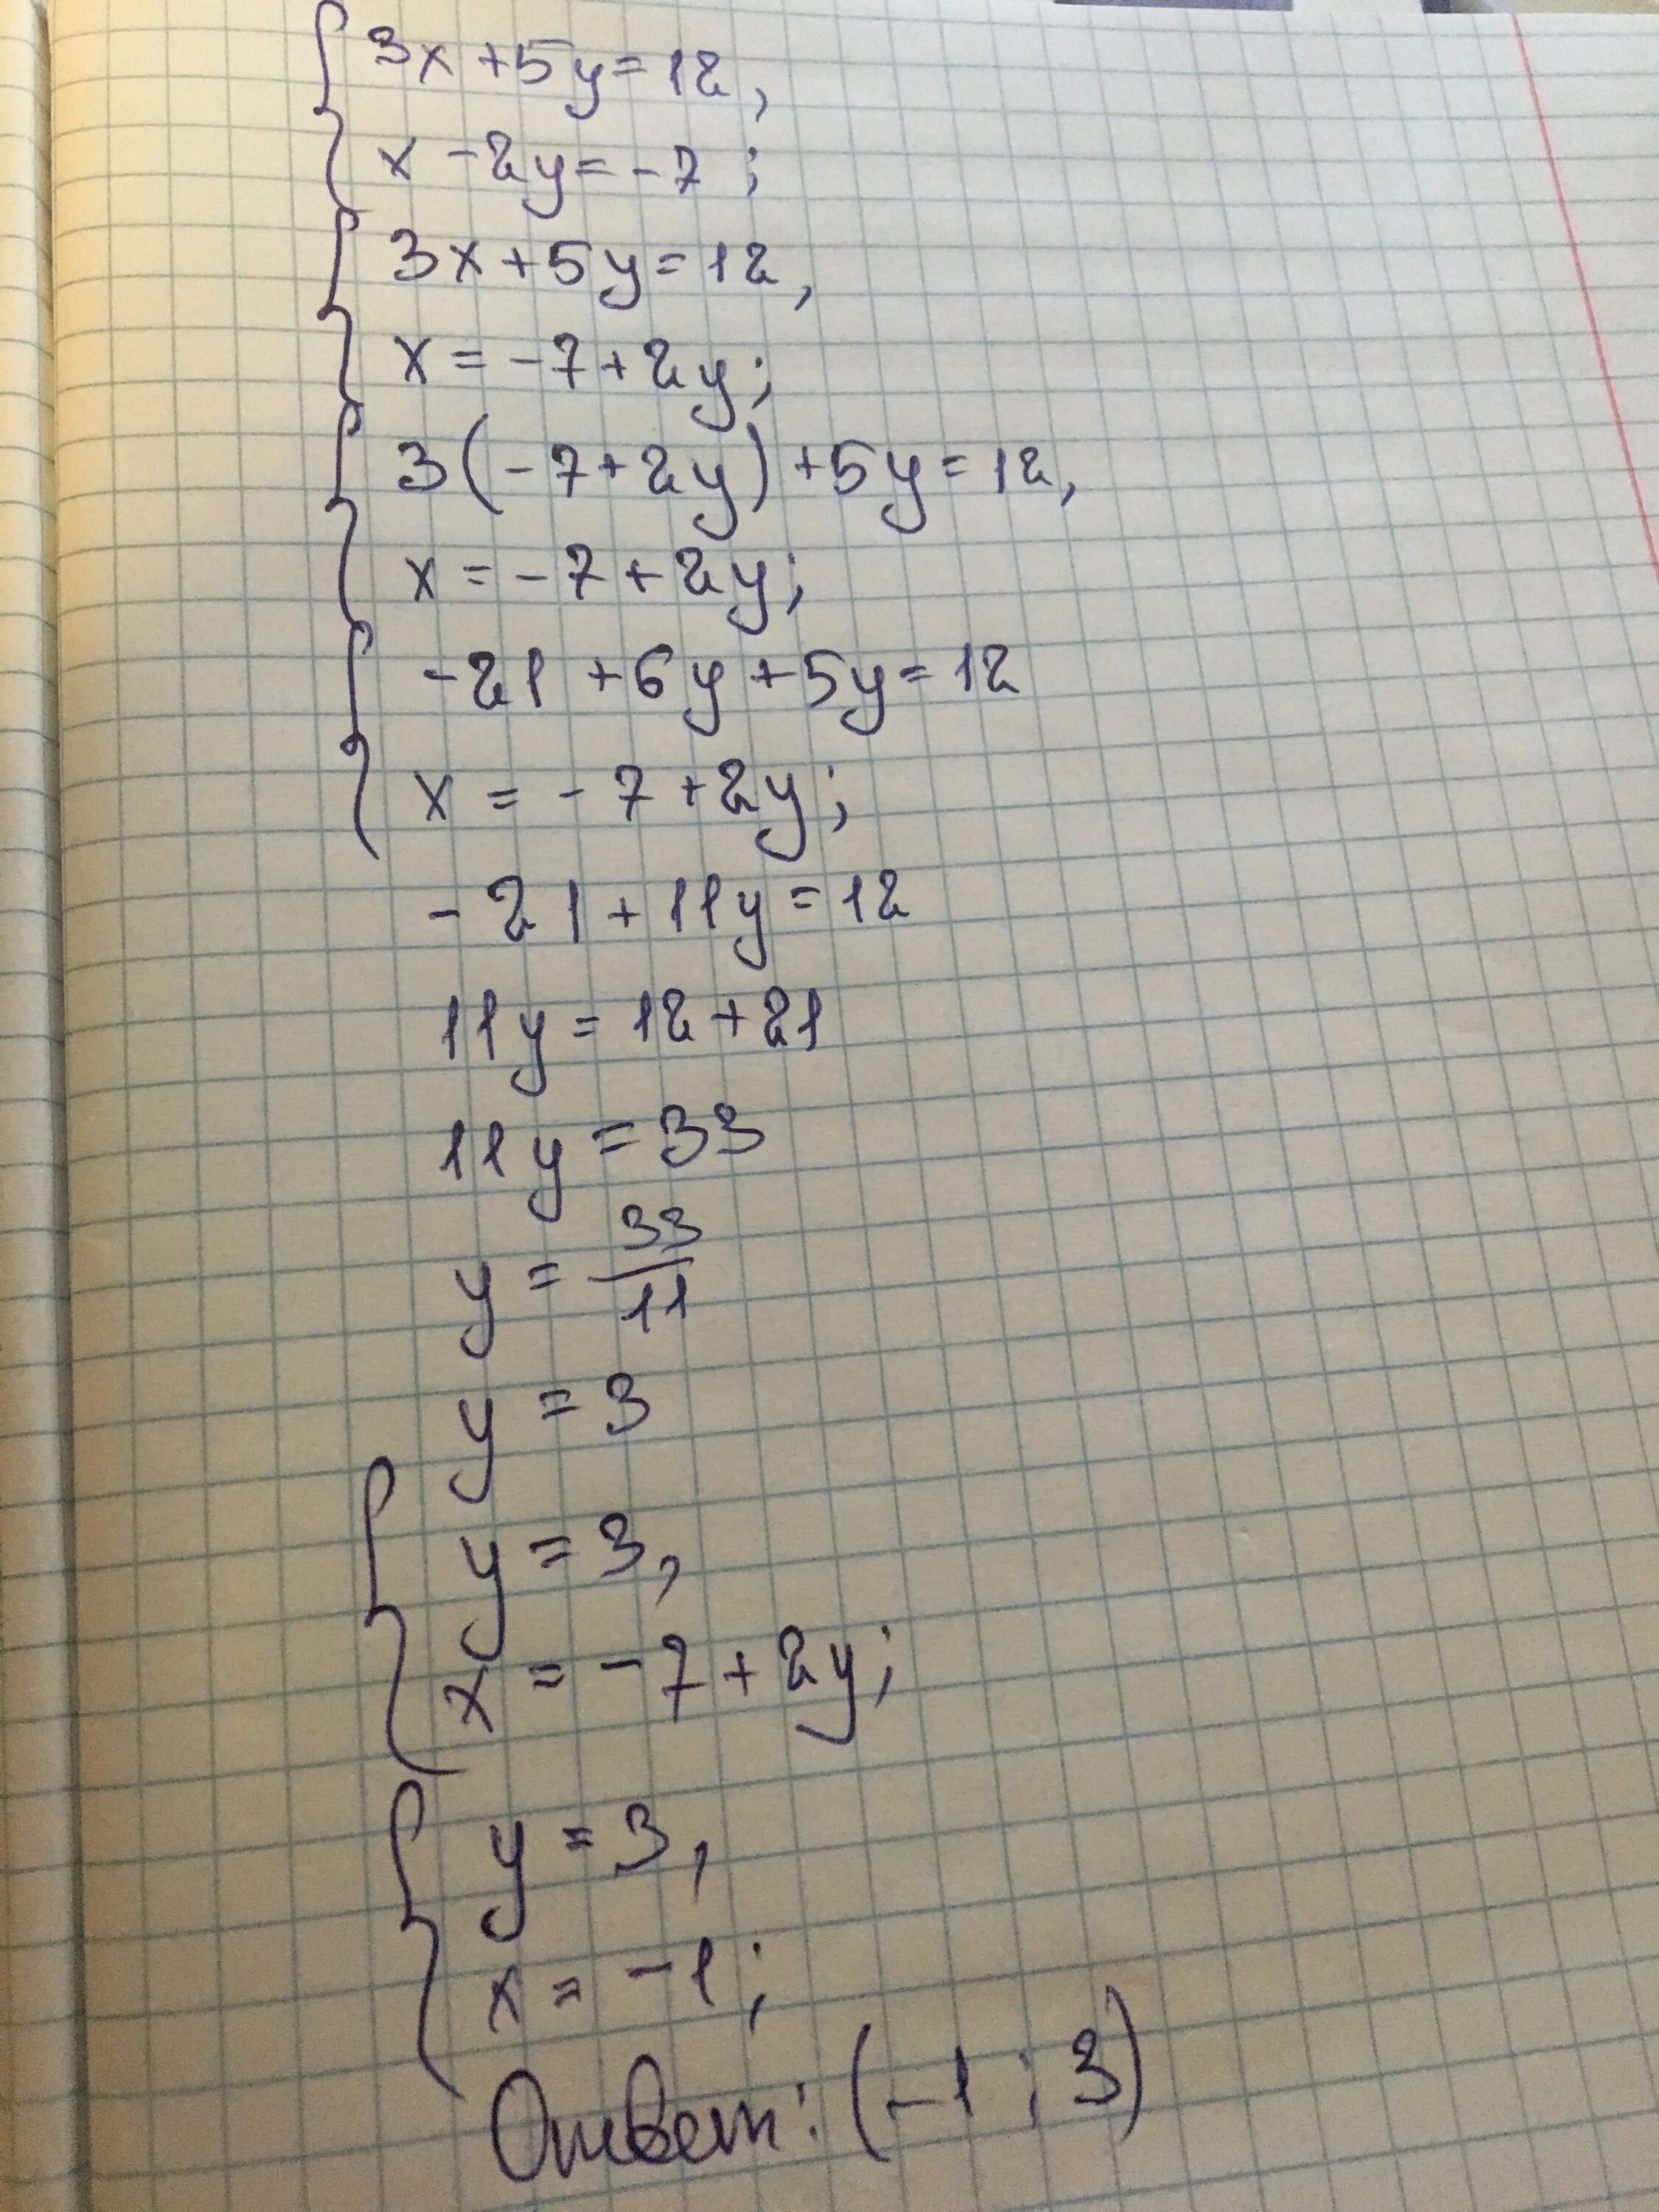 3x+5y=12,
x-2y=-7;
3x+5y=12,
x=-7+2y;
3(-7+2y)+5y=12,
x=-7+2y;
-21+6y+5y=12
x=-7+2y;
-21+11y=12
11y=12+21
11y=33
y=33/11
y=3
y=3,
x=-7+2y;
y=3,
x=-1;
Ответ: (-1;3)